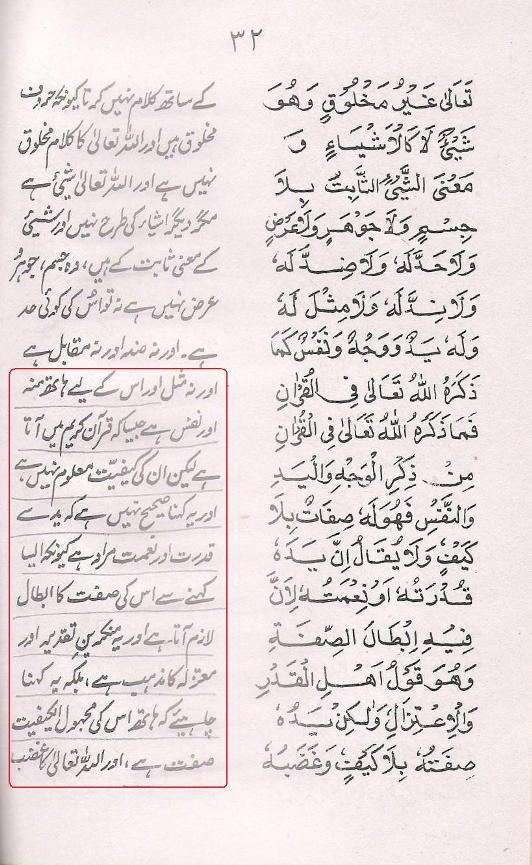 ۳۲
تَعَالٰى غَيْرُ مَخْلُوْقٍ وَهُوَ
شَيْئٌ لَا كَالْاَشْيَاءِ وَ
مَعْنَى الشَّيْئِ الثَّابِتُ بِلَا
جِسْمٍ وَلَا جَوْهَرٍ وَلَا عَرَضٍ
وَلَا حَدَّلَهٗ وَلَا ضِدَّلَهٗ
وَلَا نِدَّلَهٗ وَلَا مِثْلَ لَهٗ
وَلَهٗ يَدٌ وَوَجْهٌ وَنَفْسٌ كَمَا
ذَكَرَهُ اللّٰهُ تَعَالٰى فِى الْقُرْاٰنِ
فَمَا ذَكَرَهُ اللّٰهُ تَعَالٰى فِى الْقُرْاٰنِ
مِنْ ذِكْرِ الْوَجْهِ وَالْيَدِ
وَالنَّفْسِ فَهُوَلَهٗ صِفَاتٌ بِلَا
كَيْفٍ وَلَا يُقَالُ اِنَّ يَدَهٗ
قُدْرَتُهٗ اَوْ نِعْمَتُهٗ لِاَنَّ
فِيْهِ اِبْطَالَ الصِّفَةِ
وَهُوَ قَوْلُ اَهْلِ الْقَدْرِ
وَالْاِعْتِزَالِ وَلٰكِنْ يَدُهٗ
صِفَتُهٗ بِلَا كَيْفٍ وَغَضَبُهٗ
کے ساتھ کلام نہیں کرتا کیونکہ حروف
مخلوق ہیں اور اللہ تعالیٰ کا کلام مخلوق
نہیں ہے اور اللہ تعالیٰ شیئ ہے
مگر دیگر اشیاء کی طرح نہیں اور شیئ
کے معنی ثابت کے ہیں، وہ جسم، جوہر
عرض نہیں ہے نہ تو اس کی کوئی حد
ہے۔ اور نہ ضد اور نہ مقابل ہے
اور نہ مثل اور اس کے لیے ہاتھ منہ
اور نفس ہے جیسا کہ قرآن کریم میں آتا
ہے لیکن ان کی کیفیت معلوم نہیں ہے
اور یہ کہنا صحیح نہیں ہے کہ ید سے
قدرت اور نعمت مراد ہے کیونکہ ایسا
کہنے سے اس کی صفت کا ابطال
لازم آتا ہے اور یہ منکرین تقدیر اور
معتزلہ کا مذہب ہے، بلکہ یہ کہنا
چاہیئے کہ ہاتھ اس کی مجہول الکیفیت
صفت ہے، اور اللہ تعالیٰ کا غضب